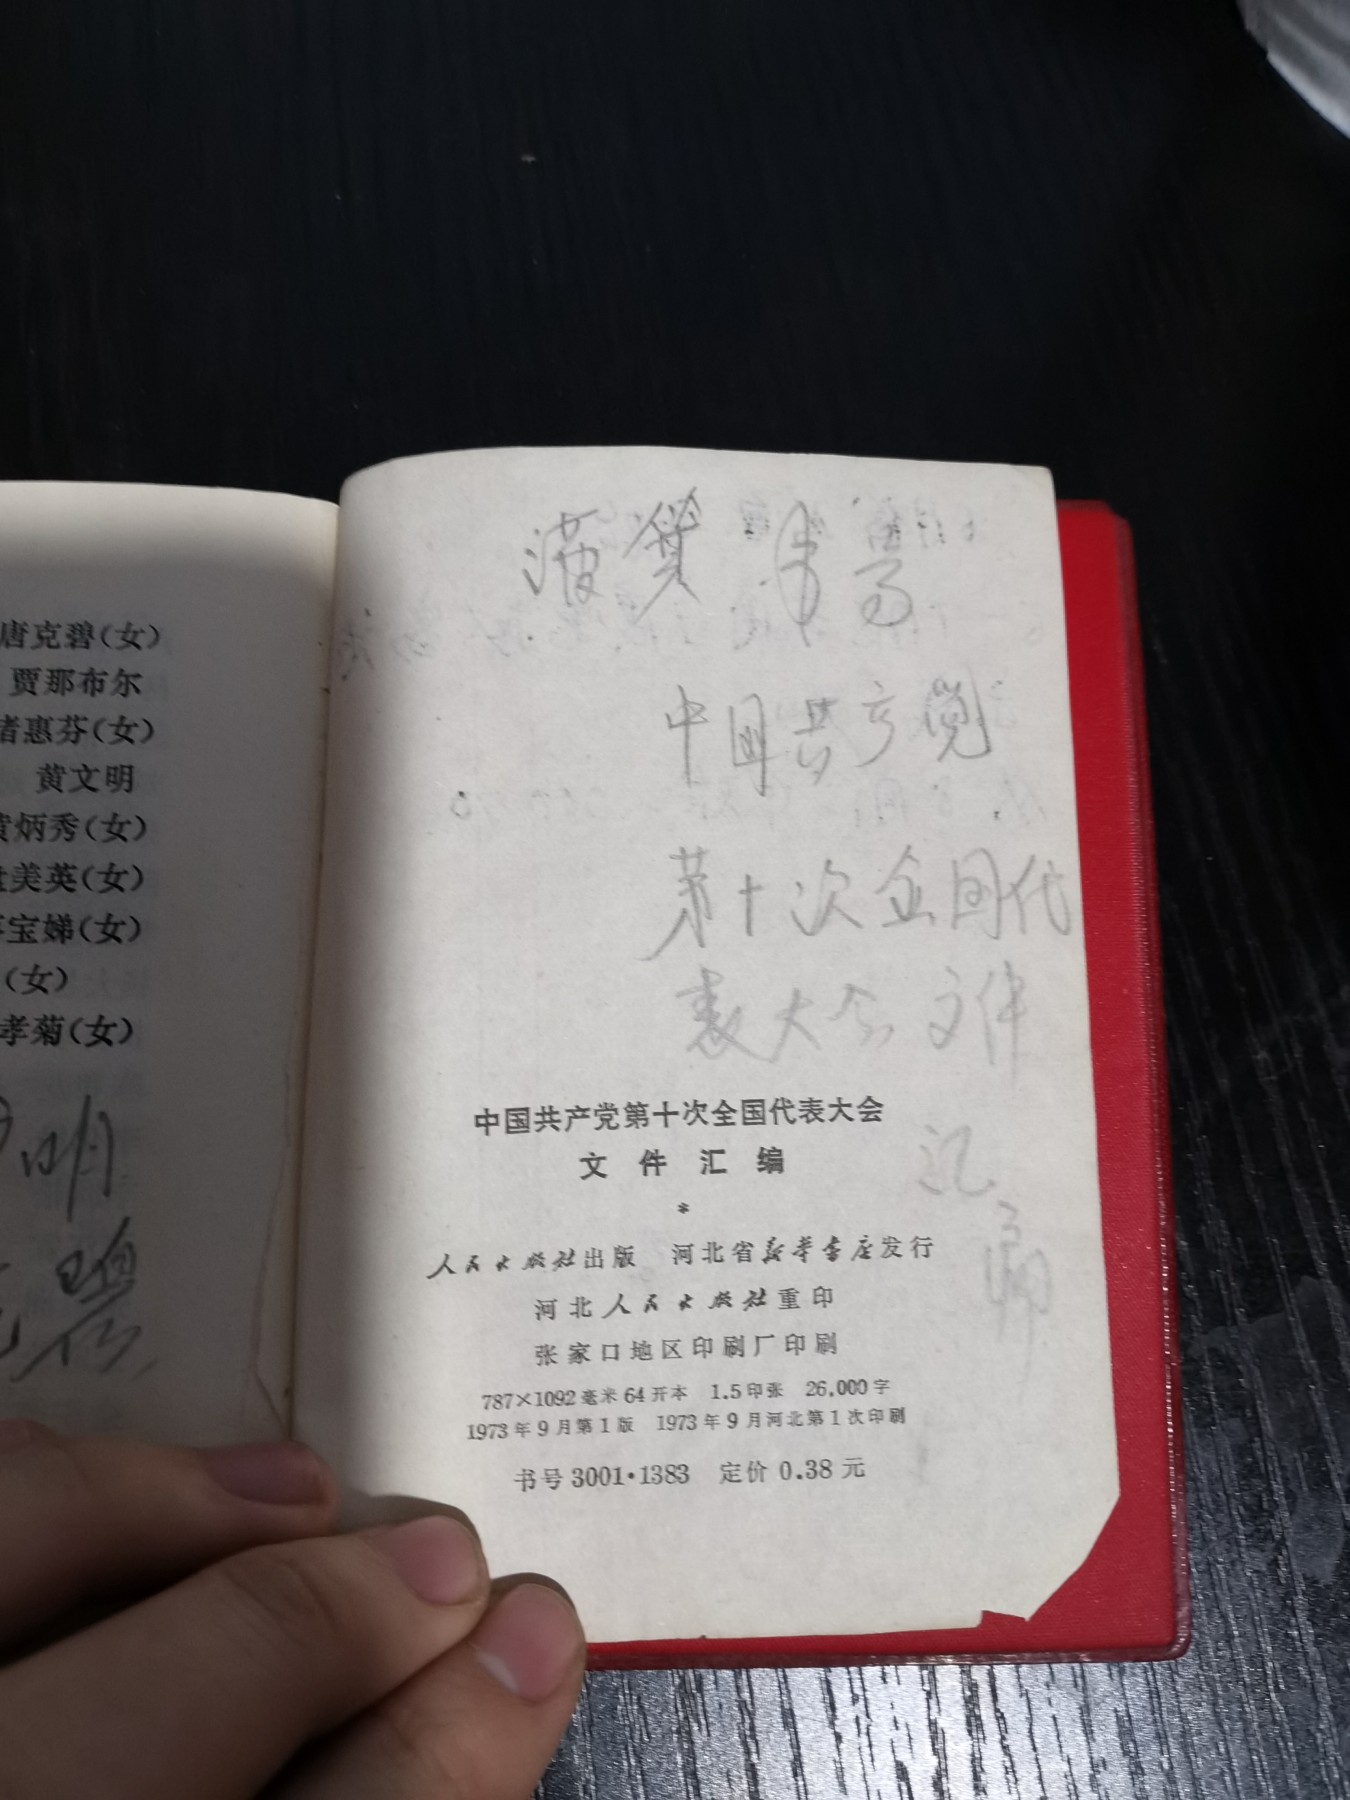 唐克碧(女)
贾那布尔
者惠芬(女)
黄文明
黄炳秀(女)
美英(女)
宝娣(女)
(女)
孝菊(女)
明
碧
中国共产党
第十次全国代
表大会文件
汇
编
中国共产党第十次全国代表大会
文件汇编
*
人民出版社出版 河北省新华书店发行
河北人民出版社重印
张家口地区印刷厂印刷
787×1092毫米64开本 1.5印张 26,000字
1973年9月第1版 1973年9月河北第1次印刷
书号3001·1383 定价0.38元